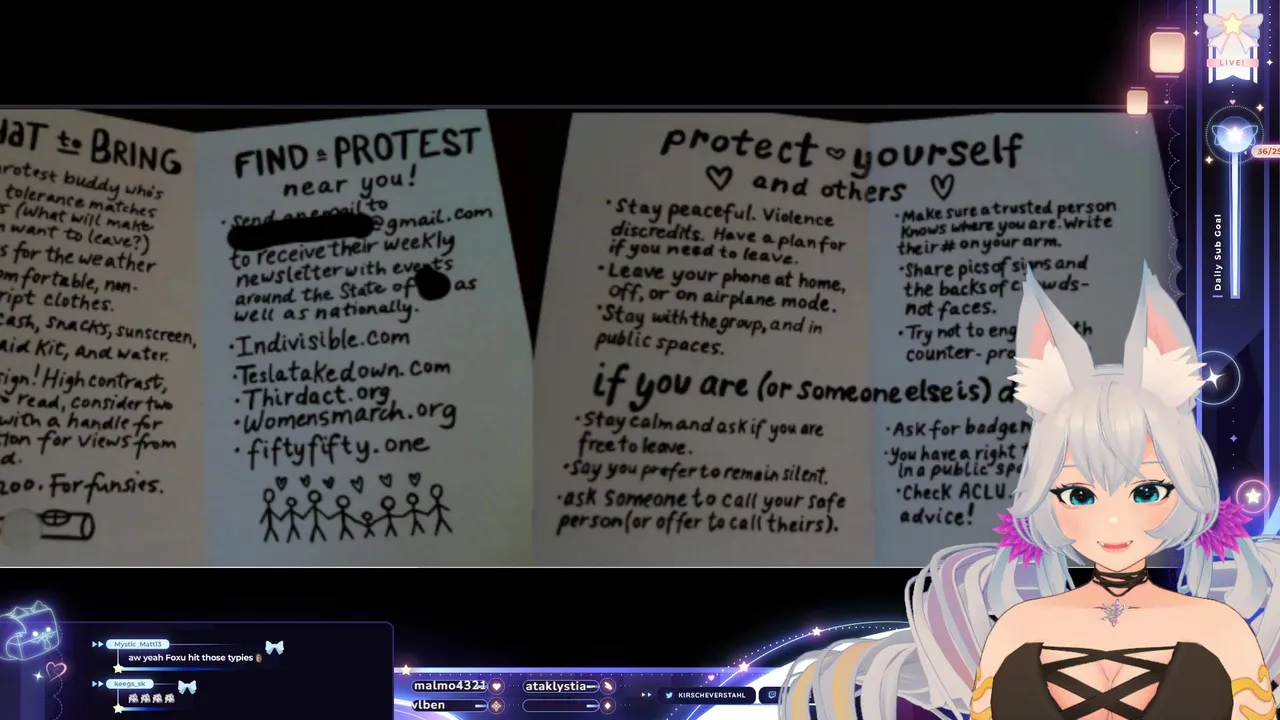 WHAT to BRING
protest buddy who's
tolerance matches
(what will make
want to leave?)
for the weather
comfortable, non-
script clothes.
cash, snacks, sunscreen,
aid kit, and water.
sign! High contrast,
read, consider two
with a handle for
for views from
200. For funsies.
FIND a PROTEST
near you!
• Send an email to
@gmail.com
to receive their weekly
newsletter with events
around the State of as
well as nationally.
• Indivisible.com
• Teslatakedown.com
• Thirdact.org
• Womensmarch.org
• fiftyfifty.one
protect yourself
and others
• Stay peaceful. Violence
discredits. Have a plan for
if you need to leave.
• Leave your phone at home,
off, or on airplane mode.
• Stay with the group, and in
public spaces.
• Make sure a trusted person
knows where you are. Write
their # on your arm.
• Share pics of signs and
the backs of crowds-
not faces.
• Try not to
counter-
if you are (or someone else is)
• Stay calm and ask if you are
free to leave.
• Say you prefer to remain silent.
• ask someone to call your safe
person (or offer to call theirs).
• Ask for
• You have a right
in a public
• Check ACLU.
advice!
LIVE!
36/25
Daily Sub Goal
Mystic_Matt13
aw yeah Foxu hit those typies
keegs_sk
malmo4321
ataklystia
vlben
KIRSCHEVERSTAHL